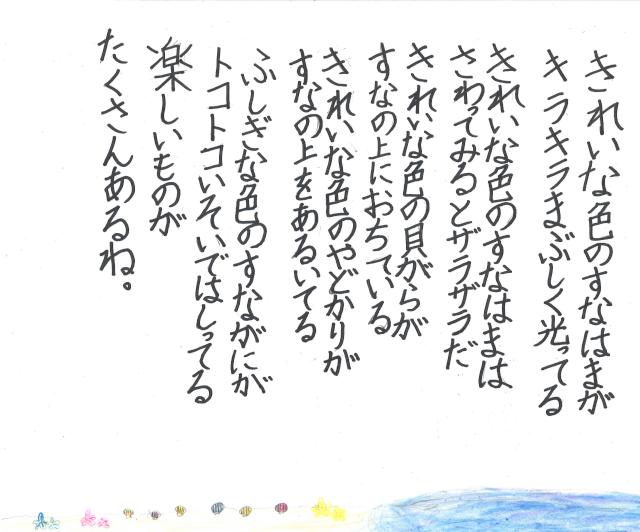 きれいな色のすなはまが
キラキラまぶしく光ってる
きれいな色のすなはまは
さわってみるとザラザラだ
きれいな色の貝がらが
すなの上におちている
きれいな色のやどかりが
すなの上をあるいてる
ふしぎな色のすながにが
トコトコいそいではしってる
楽しいものが
たくさんあるね。